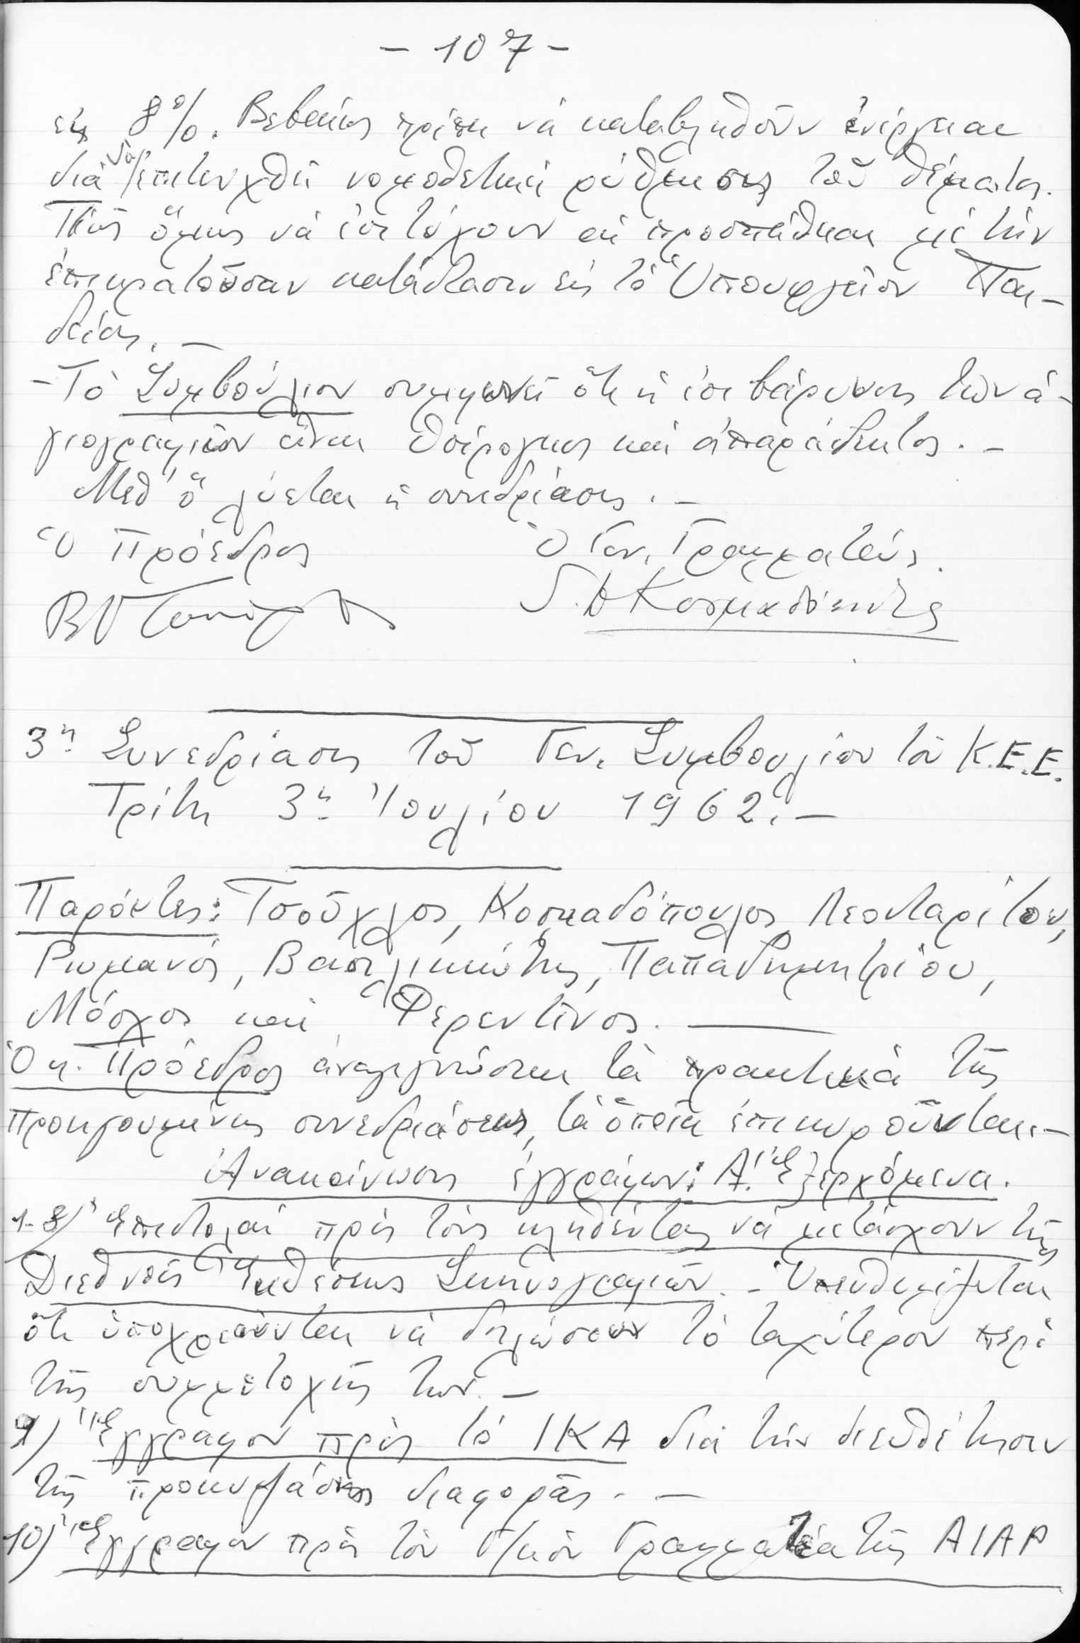 - 107 -
εἰς 8%. Βεβαίως πρέπει νὰ καταβληθοῦν ἐνέργειαι
διὰ νὰ ἐπιτευχθῆ νομοθετικὴ ρύθμισις τοῦ θέματος.
Πῶς ὅμως νὰ ἐπιτύχουν αἱ προσπάθειαι μὲ τὴν
ἐπικρατοῦσαν κατάστασιν εἰς τὸ Ὑπουργεῖον Παι-
δείας. -
- Τὸ Συμβούλιον συμφωνεῖ ὅτι ἡ ἐπιβάρυνσις τῶν ἁ-
γιογραφιῶν εἶναι ὑπέρογκος καὶ ἀπαράδεκτος. -
Μεθ' ὃ λύεται ἡ συνεδρίασις. -
Ὁ Πρόεδρος Ὁ Γεν. Γραμματεύς.
3η Συνεδρίασις τοῦ Γεν. Συμβουλίου τοῦ Κ.Ε.Ε.
Τρίτη 3η Ἰουλίου 1962. -
Παρόντες: Τσοῦχλος, Κοσμαδόπουλος, Λεονταρίτου,
Ρωμανός, Βασιλικιώτης, Παπαδημητρίου,
Μόσχος καὶ Φερεντῖνος. -
Ὁ κ. Πρόεδρος ἀναγιγνώσκει τὰ πρακτικὰ τῆς
προηγουμένης συνεδριάσεως, τὰ ὁποῖα ἐπικυροῦνται. -
Ἀνακοίνωσις ἐγγράφων: Α'. Ἐξερχόμενα.
1-8) Ἐπιστολαὶ πρὸς τοὺς κληθέντας νὰ μετάσχουν τῆς
Διεθνοῦς Ἐκθέσεως Σκηνογραφιῶν. - Ὑπενθυμίζεται
ὅτι ὑποχρεοῦνται νὰ δηλώσουν τὸ ταχύτερον περὶ
τῆς συμμετοχῆς των. -
9) Ἔγγραφον πρὸς τὸ ΙΚΑ διὰ τὴν διευθέτησιν
τῆς προκυψάσης διαφορᾶς. -
10) Ἔγγραφον πρὸς τὸν Γ/κὸν Γραμματέα τῆς ΑΙΑΡ